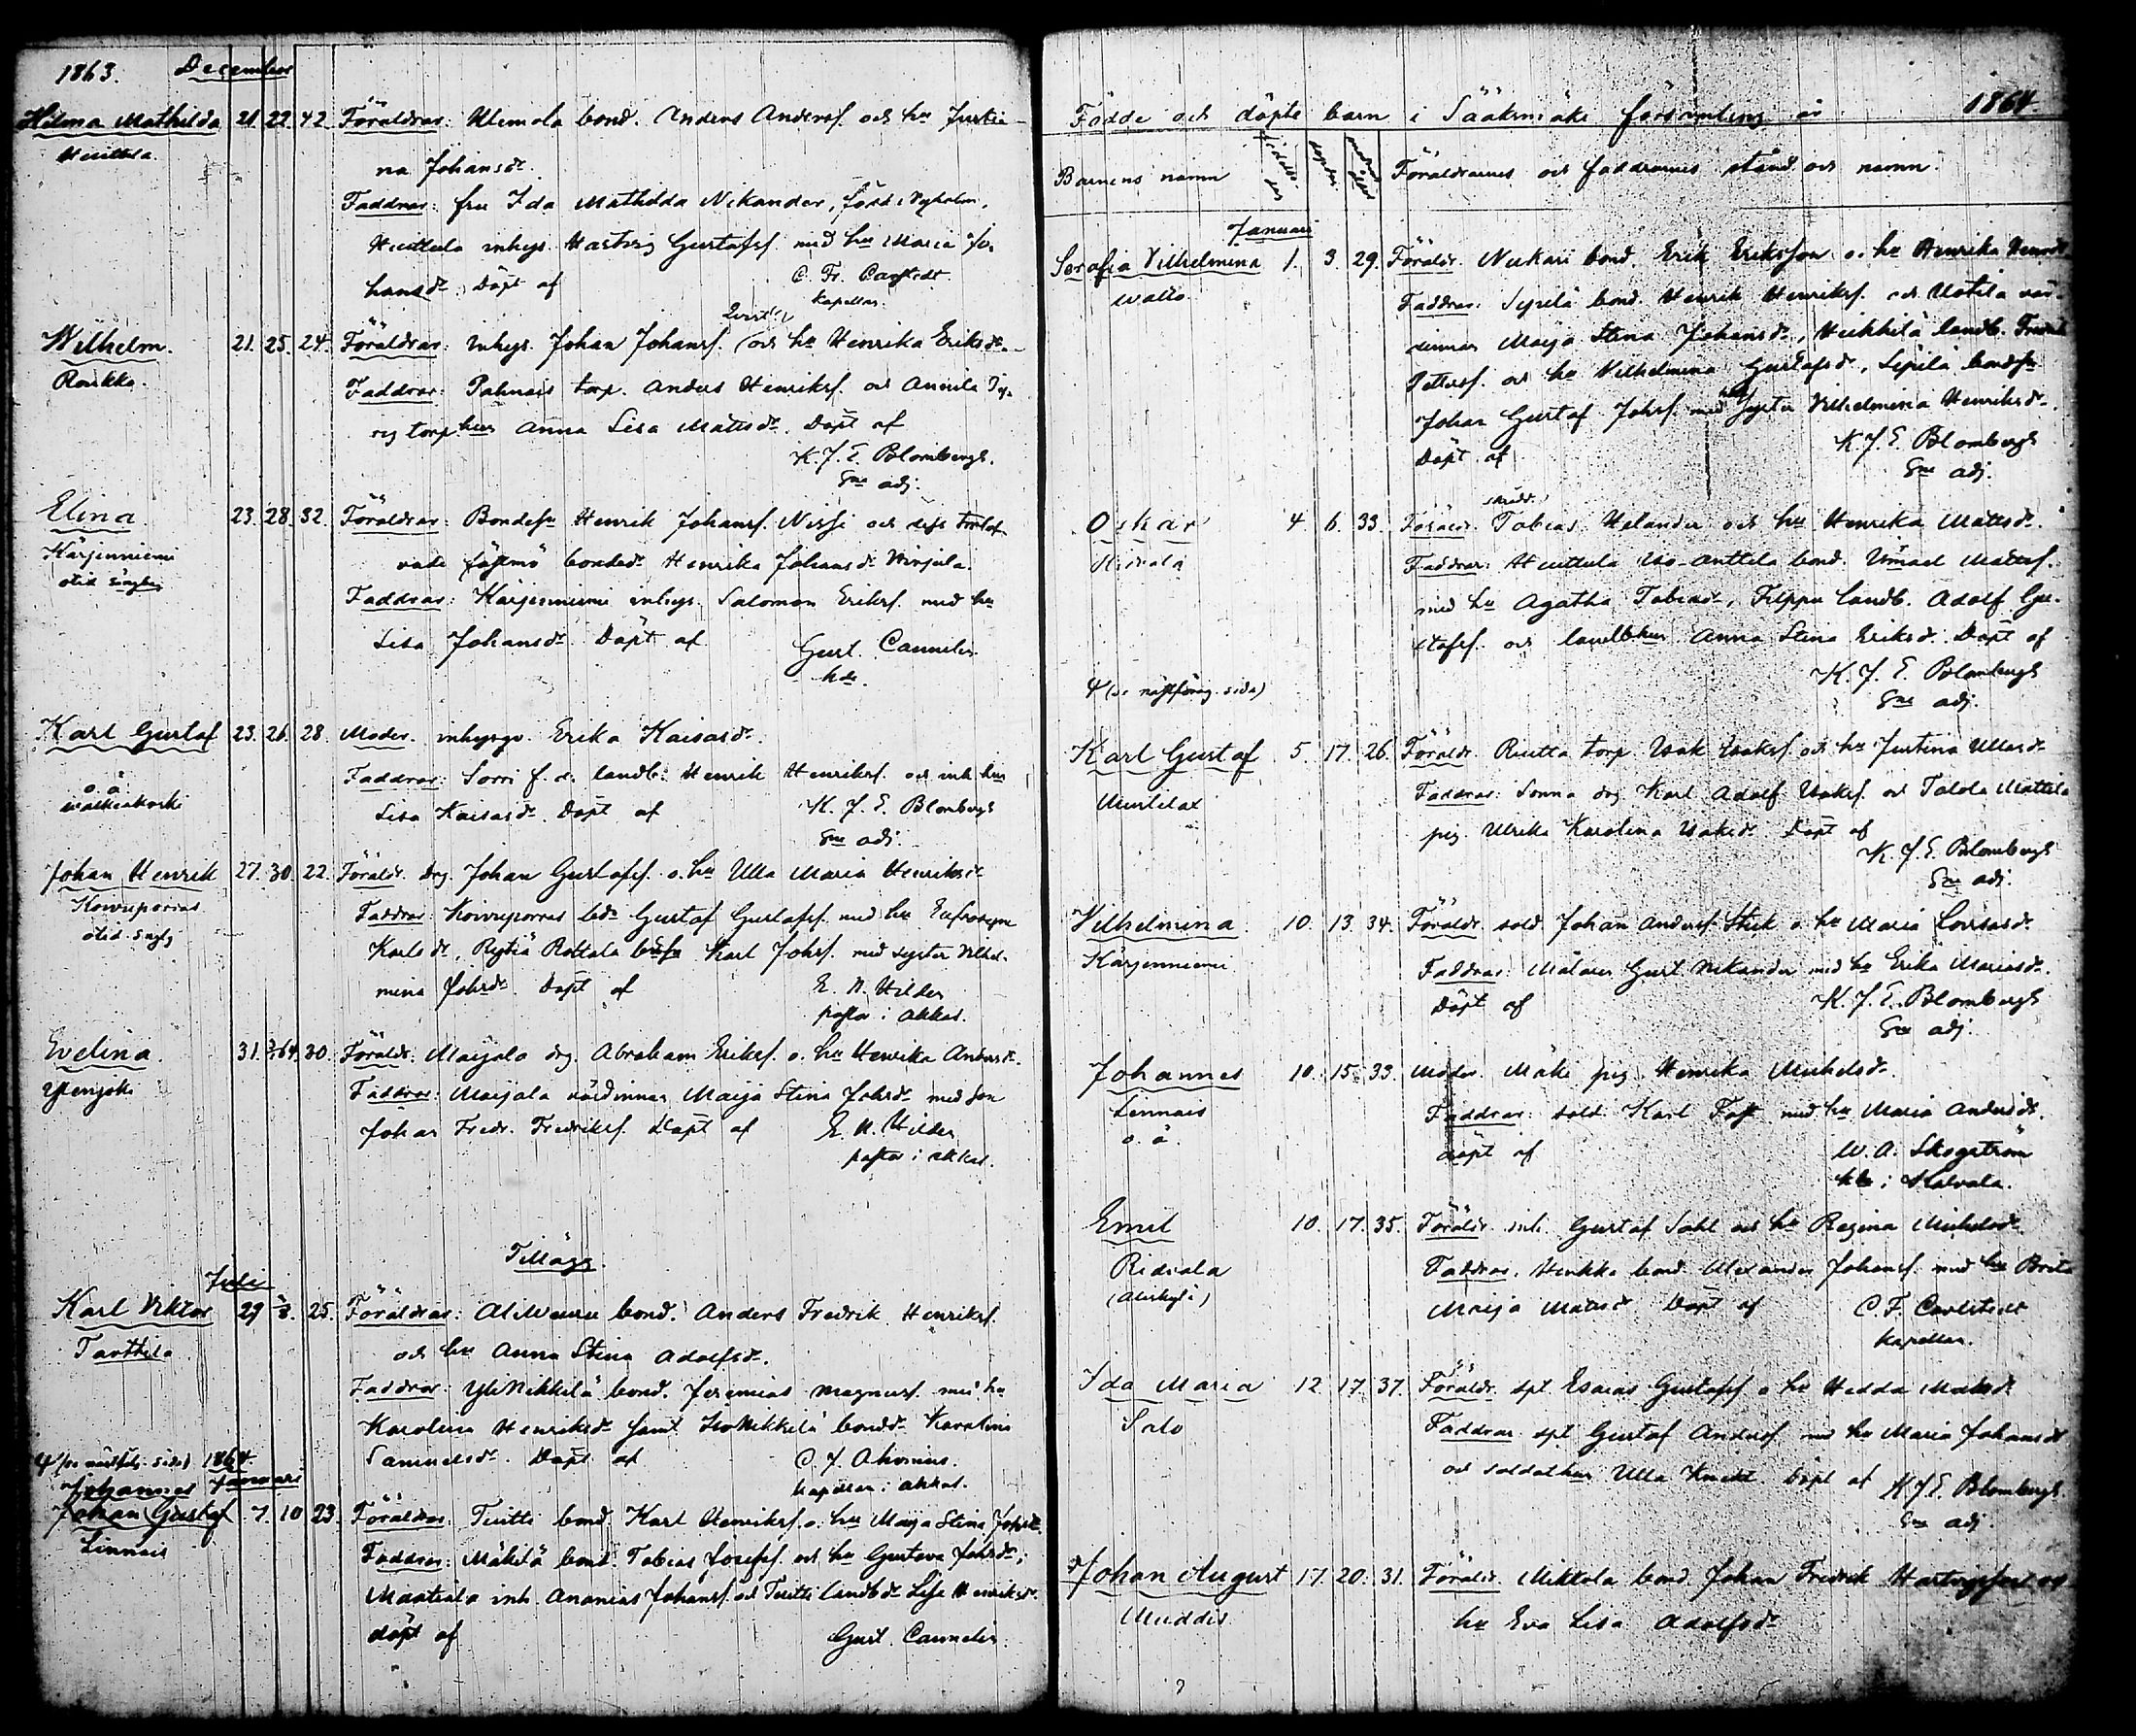 1863. December
Hilma Mathilda 21. 22. 42. Föräldrar: Ulemola bond. Anders Andersf. och hu Justi-
Huittula. na Johansdr.
Faddrar: fru Ida Mathilda Nikander, född Nyholm,
Huittula inhys. Hartvig Gustafsf. med hu Maria Jo-
hansdr. Döpt af C. Fr. Carlstedt
kapellan.
Wilhelm. 21. 25. 24. Föräldrar: Inhys. Johan Johansf. och hu Henrika Eriksdr.
Roukko. Faddrar: torp. Anders Henriksf. och Annila
torphu Anna Lisa Mattsdr. Döpt af
K. J. E. Blombergh.
adj.
Elina 23. 28. 32. Föräldrar: Bondesn Henrik Johansf. Nissi och dess trolof-
Kärjenniemi vade fästmö bondedr. Henrika Johansdr.
Faddrar: Kärjenniemi inhys. Salomon Eriksf. med hu
Lisa Johansdr. Döpt af Gust. Cannelin
kde.
Karl Gustaf 23. 26. 28. Moder. inhysgs. Erika Kaisasdr.
o. ä. Faddrar: Sorri f. d. landb. Henrik Henriksf. och inh. hu
Walkiakoski Lisa Kaisasdr. Döpt af K. J. E. Blombergh
adj.
Johan Henrik 27. 30. 22. Föräldr. drg. Johan Gustafsf. o. hu Ulla Maria Henriksdr.
Koivuporras Faddrar: Koivuporras Gustaf Gustafsf. med hu Eufrosyne
Karlsdr., Rottola Karl Johsf. med syster Vilhel-
mina Johsdr. Döpt af E. N. Hilden
pastor i Akkas.
Evelina. 31. 3/1 64. 30. Föräldr. Maijala drg. Abraham Eriksf. o. hu Henrika Andersdr.
Faddrar: Maijala värdinnan Maija Stina Johsdr. med son
Johan Fredr. Fredriksf. Döpt af E. N. Hilden
pastor i Akkas.
Tillägg.
Juli
Karl Viktor 29 25. Föräldrar: bond. Anders Fredrik Henriksf.
Tarttila och hu Anna Stina Adolfsdr.
Faddrar: YliNikkilä bond. Jeremias Magnusf. med hu
Karolina Henriksdr. samt IsoNikkilä bondedr. Karolina
Samuelsdr. Döpt af C. J. Ahonius.
kapellan i Akkas.
(se nästfölj. sida) 1864.
Johannes Januari
Johan Gustaf 7. 10 23. Föräldrar: Tuitti bond. Karl Henriksf. o. hu Maja Stina Johsdr.
Linnais Faddrar: Mäkilä bond. Tobias Josefsf. och hu Gustava Johsdr.,
Maatiala inh. Ananias Johansf. och Tuitti landbdr. Lisa Henriksdr.
döpt af Gust. Cannelin.
Födde och döpte barn i Sääksmäki församling år 1864
Barnens namn födelse- Föräldrarnes och faddrarnes stånd och namn.
Januari
Serafia Vilhelmina 1. 3. 29. Föräldr. Nukari bond. Erik Eriksson o. hu Henrika
Wallo. Faddrar: Sipilä bond. Henrik Henriksf. och Uotila vär-
dinnan Maija Stina Johansdr., Heikkilä landb. Fredrik
Pettersf. och hu Vilhelmina Gustafsdr., Sipilä bondesn
Johan Gustaf Johsf. med syster Vilhelmina Henriksdr.
Döpt af K. J. E. Blombergh
adj.
Oskar 4. 6. 33. Föräldr. Tobias Helander och hu Henrika Mattsdr.
Ridvala Faddrar: Huittula Iso-Anttila bond. Mattsf.
med hu Agatha Tobiasdr., Filppu landb. Adolf Gu-
stafsf. och landbhu Anna Stina Eriksdr. Döpt af
K. J. E. Blombergh
adj.
(se nästföreg. sida)
Karl Gustaf 5. 17. 26. Föräldr. Riutta torp. Isak Isaksf. och hu Justina Ullasdr.
Faddrar: Sonna drg. Karl Adolf Isaksf. och Talola Mattila
pig. Ulrika Karolina Isaksdr. Döpt af
K. J. E. Blombergh
adj.
Vilhelmina. 10. 13. 34. Föräldr. sold. Johan Andersf. o. hu Maria Lovisasdr.
Kärjenniemi Faddrar: Målaren Gust. Nikander med hu Erika Mariasdr.
Döpt af K. J. E. Blombergh
adj.
Johannes 10. 15. 33. Moder. Mäki pig. Henrika Mickelsdr.
Linnais Faddrar: sold. Karl Fast med hu Maria Andersdr.
o. ä. döpt af W. A. Skogström
i Kalvola.
Emil 10. 17. 35. Föräldr. inh. Gustaf Sahl och hu Regina Mickelsdr.
Ridvala Faddrar. bond. Alexander Johansf. med hu Brita
Maija Mattsdr. Döpt af C. F. Carlstedt
kapellan.
Ida Maria 12. 17. 37. Föräldr. spt. Esaias Gustafsf. o. hu Hedda Mattsdr.
Salo Faddrar. spt. Gustaf Andersf. med hu Maria Johansdr.
och soldathu Ulla Döpt af K. J. E. Blombergh.
adj.
Johan August 17. 20. 31. Föräldr. Mikkola bond. Johan Fredrik Hartvigsson och
Muddis hu Eva Lisa Adolfsdr.